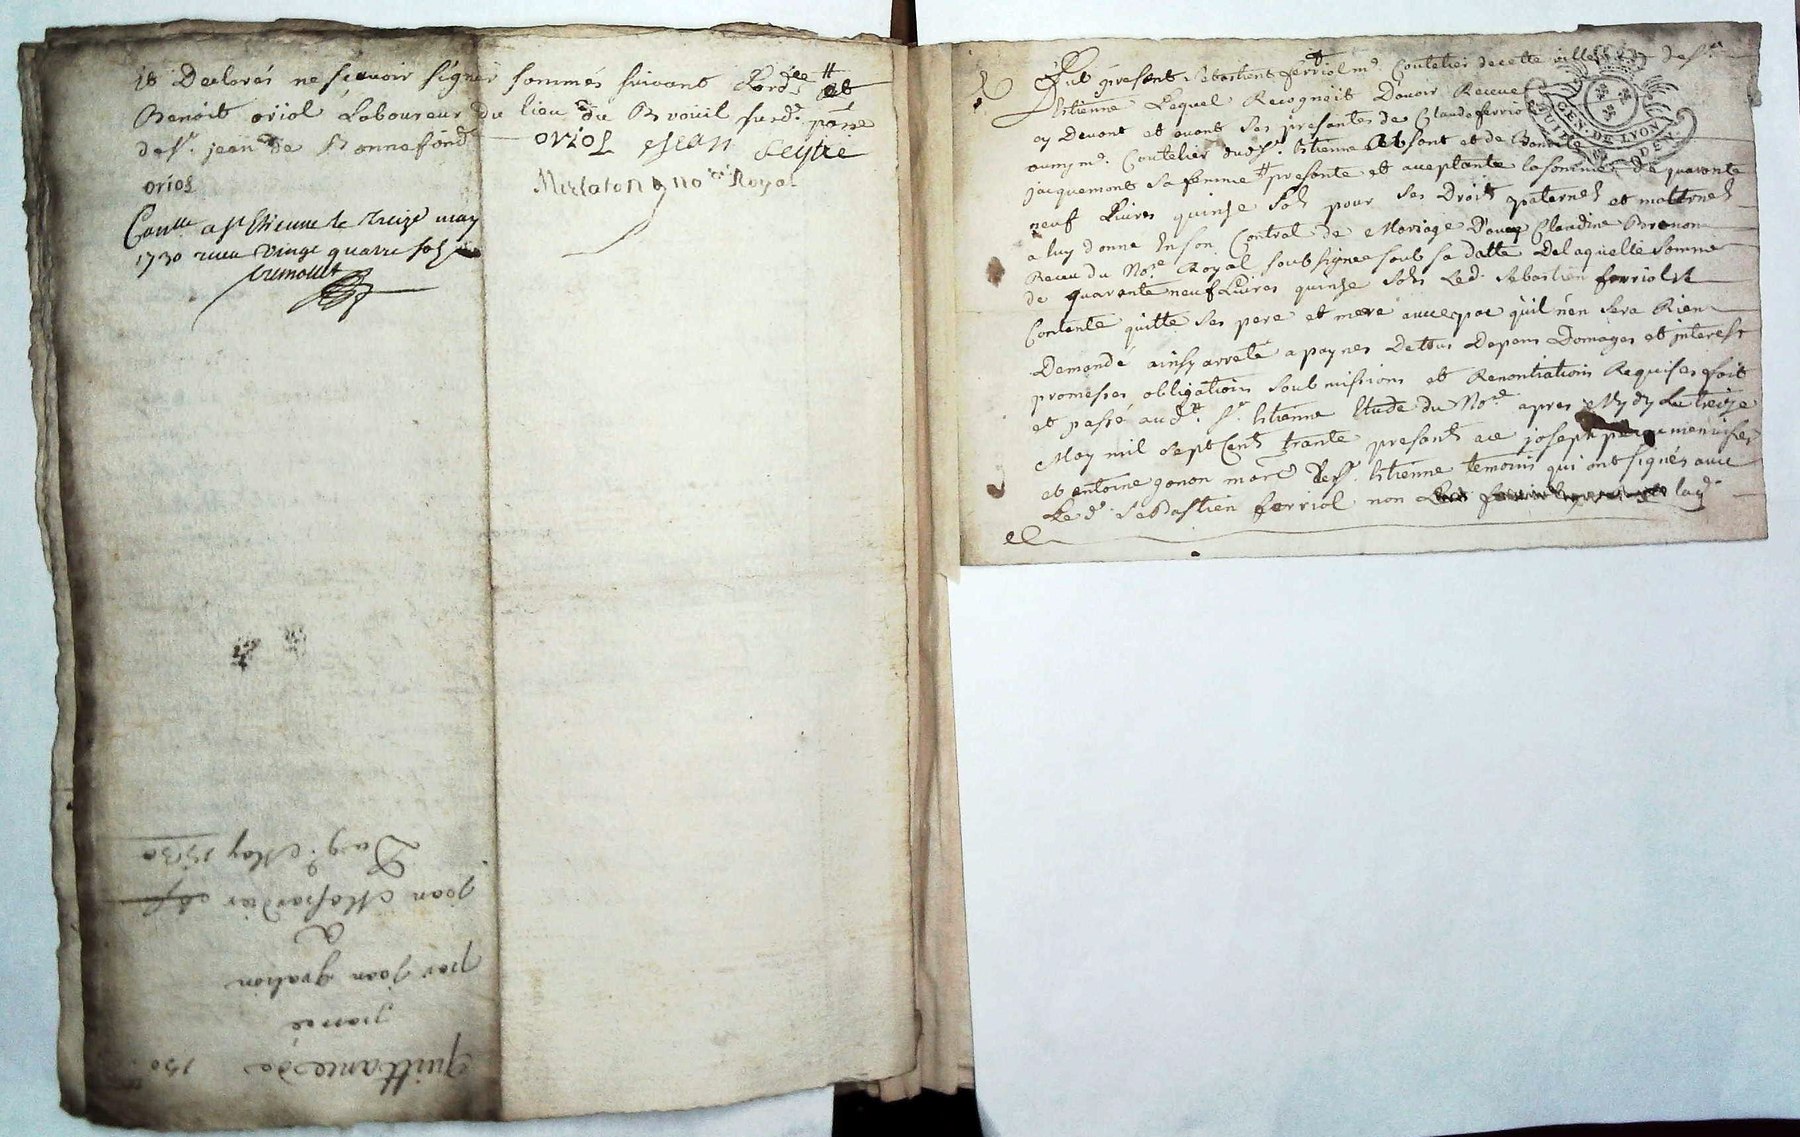 et Declarés ne sçavoir signer sommés suivant Lord.ce et
Benoit oriol Laboureur du lieu du Brouil surd. par.sse
de st. jean de Bonnefond
oriol jean seytre
oriol
Merlaton no.re Royal
Con.llé a st Etienne le treize may
1730 receu vingt quatre sols
quittance de 150
passée
par jean gration
a
jean Massardier
Du 9.e May 1730
Fut present sebastient ferriol m.e Coutelier de cette ville de st
Etienne Lequel Recognoit Davoir Receue
cy Devant et avant ses presantes de Claude ferriol
aussy m.e Coutelier dud st Etienne absant et de Benoite
jacquemont sa femme presante et acceptante la somme de quarante
neuf Livres quinse sols pour ses Droits paternels et maternels
a luy donné En son Contrat de Mariage Davec Claudine
Receu du No.re Royal soubsigné soub sa datte De laquelle somme
de quarante neuf Livres quinse sols Led. sebastien ferriol st
Contente quitte ses pere et mere avec pac quil n'en sera Rien
Demandé ainsy arreté a paynes De tous Depens Domages et interest
promesses obligations soubmissions et Renontiations Requises fait
et passé aud.t st Etienne Etude du No.re apres Mydy Le treize
May mil sept Cents trante presants joseph menuisier
et antoine gonon mar.d de st. Etienne temoins qui ont signés avec
Led. sebastien ferriol non lad.
GEN. DE LYON